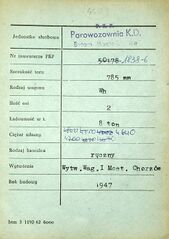 Jednostka służbowa
P.K.P.
Parowozownia K.D.
Nr inwentarza PKP 50178-1838-6
Szerokość toru 785 mm
Rodzaj wagonu Wh
Ilość osi 2
Ładowność w t. 8 ton
Ciężar własny 4600
Rodzaj hamulca ręczny
Wytwórnia Wytw. Wag. i Most. Chorzów
Rok budowy 1947